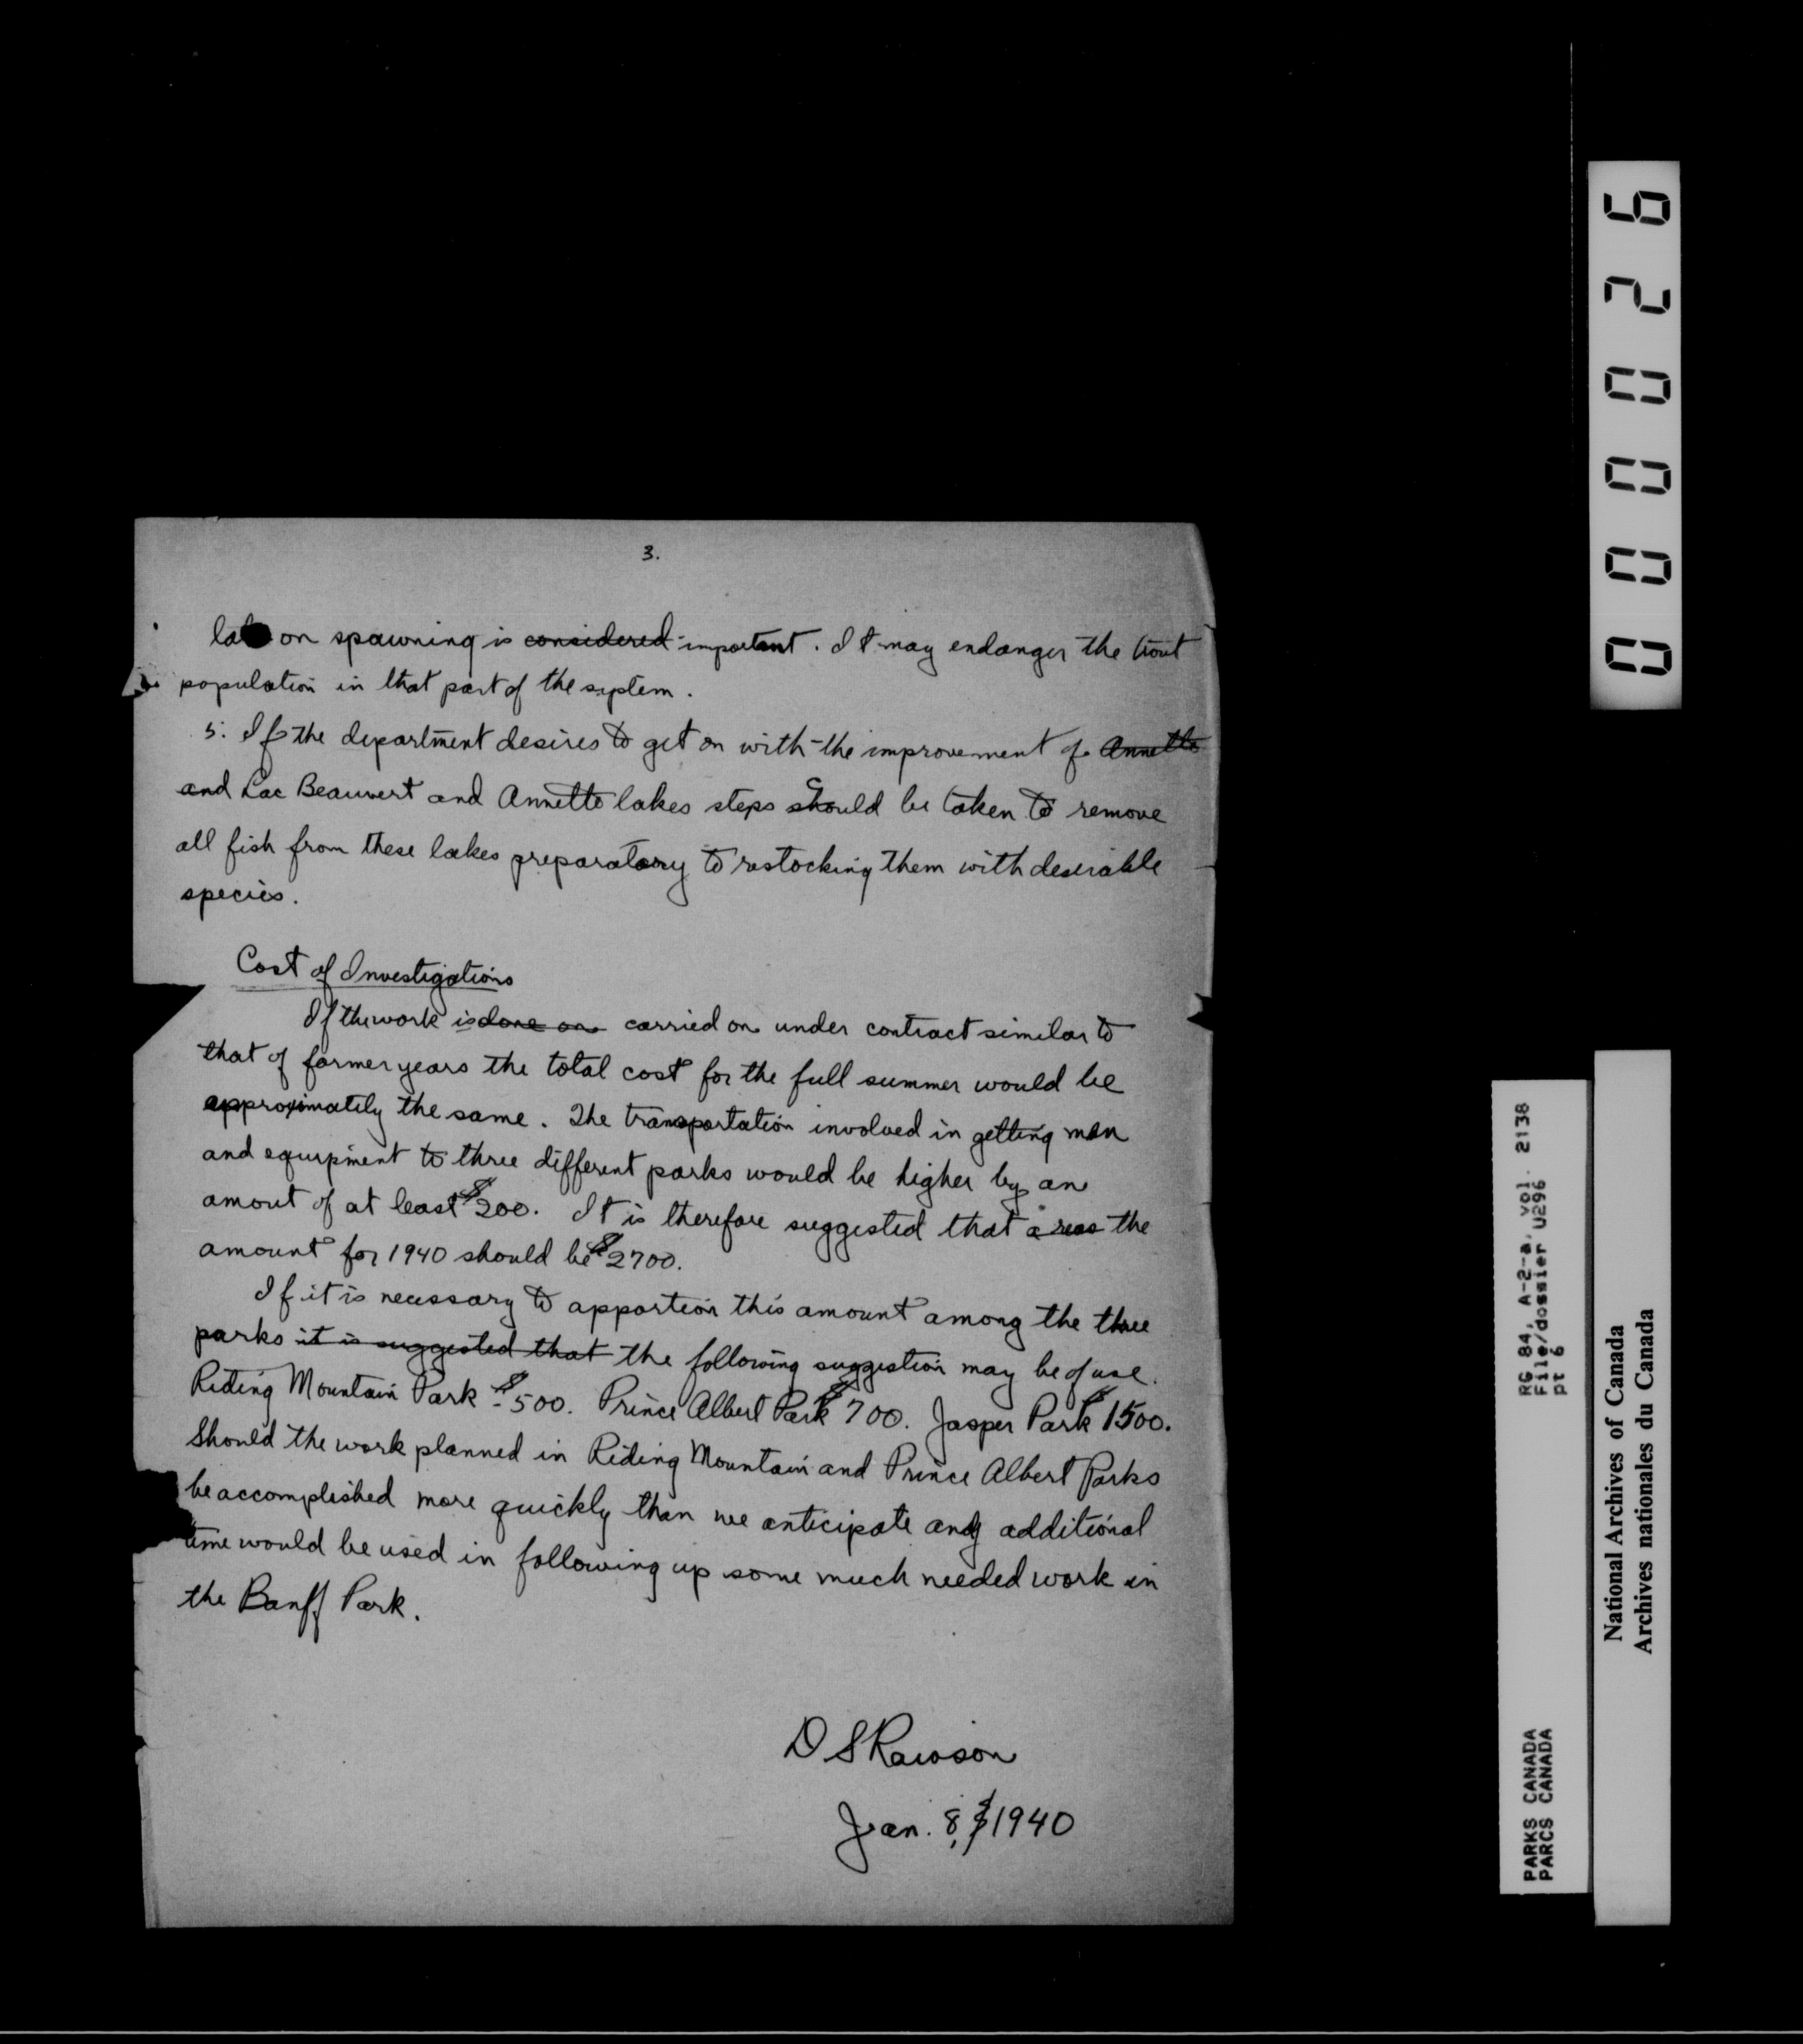 3.
lake on spawning is considered important. It may endanger the trout
population in that part of the system.
5. If the department desires to get on with the improvement of Annette
and Lac Beauvert and Annette lakes steps should be taken to remove
all fish from these lakes preparatory to restocking them with desirable
species.
Cost of Investigations
If the work is done on carried on under contract similar to
that of former years the total cost for the full summer would be
approximately the same. The transportation involved in getting men
and equipment to three different parks would be higher by an
amout of at least $200. It is therefore suggested that the
amount for 1940 should be $2700.
If it is necessary to apportion this amount among the three
parks it is suggested that the following suggestion may be of use.
Riding Mountain Park - $500. Prince Albert Park $700. Jasper Park $1500.
Should the work planned in Riding Mountain and Prince Albert Parks
be accomplished more quickly than we anticipate any additional
time would be used in following up some much needed work in
the Banff Park.
D S Rawson
Jan. 8, 1940
000026
RG 84, A-2-a, vol. 2138
File/dossier U296
pt 6
PARKS CANADA
PARCS CANADA
National Archives of Canada
Archives nationales du Canada